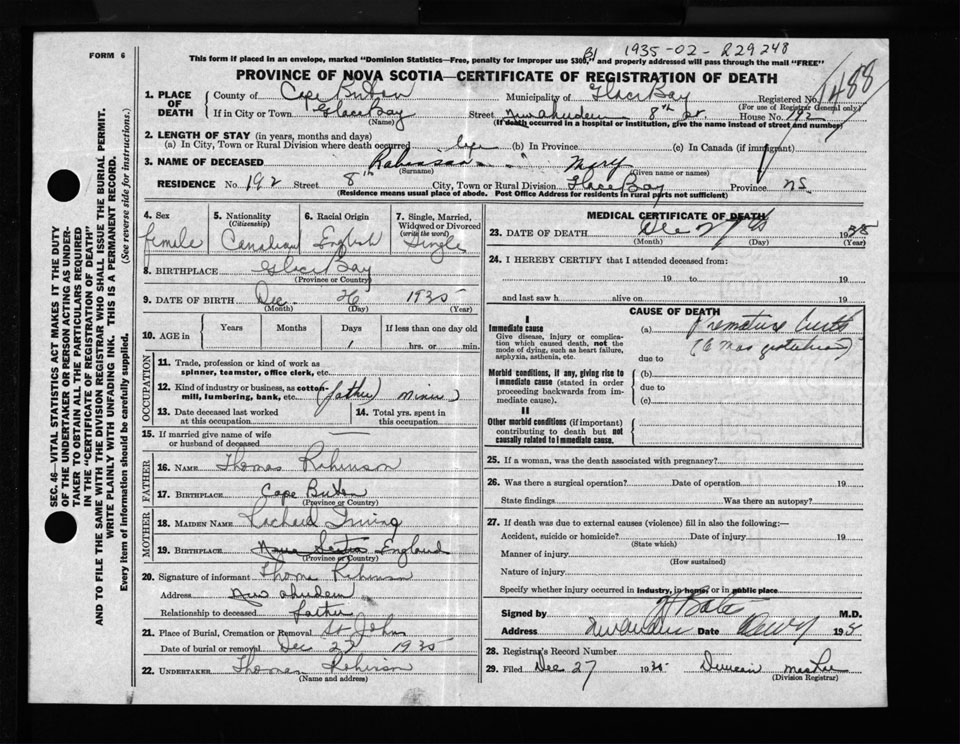 FORM 6
BJ 1935-02-R29248
This form if placed in an envelope, marked "Dominion Statistics—Free, penalty for improper use $300," and properly addressed will pass through the mail "FREE"
PROVINCE OF NOVA SCOTIA—CERTIFICATE OF REGISTRATION OF DEATH
1488
SEC. 46—VITAL STATISTICS ACT MAKES IT THE DUTY
OF THE UNDERTAKER OR PERSON ACTING AS UNDER-
TAKER TO OBTAIN ALL THE PARTICULARS REQUIRED
IN THE "CERTIFICATE OF REGISTRATION OF DEATH"
AND TO FILE THE SAME WITH THE DIVISION REGISTRAR WHO SHALL ISSUE THE BURIAL PERMIT.
WRITE PLAINLY WITH UNFADING INK. THIS IS A PERMANENT RECORD.
Every item of information should be carefully supplied. (See reverse side for instructions.)
1. PLACE OF DEATH
County of Cape Breton Municipality of Glace Bay Registered No.
(For use of Registrar General only)
If in City or Town Glace Bay Street New Aberdeen 8th St. House No. 192
(Name) (If death occurred in a hospital or institution, give the name instead of street and number)
2. LENGTH OF STAY (in years, months and days)
(a) In City, Town or Rural Division where death occurred life (b) In Province (c) In Canada (if immigrant)
3. NAME OF DECEASED Robinson Mary
(Surname) (Given name or names)
RESIDENCE No. 192 Street 8th City, Town or Rural Division Glace Bay Province NS
(Residence means usual place of abode. Post Office Address for residents in rural parts not sufficient)
4. Sex
female
5. Nationality
(Citizenship)
Canadian
6. Racial Origin
English
7. Single, Married,
Widowed or Divorced
(write the word)
Single
8. BIRTHPLACE Glace Bay
(Province or Country)
9. DATE OF BIRTH Dec. 26 1935
(Month) (Day) (Year)
10. AGE in
Years Months Days If less than one day old
1 hrs. or min.
OCCUPATION
11. Trade, profession or kind of work as
spinner, teamster, office clerk, etc.
12. Kind of industry or business, as cotton-
mill, lumbering, bank, etc. (father) miner
13. Date deceased last worked
at this occupation
14. Total yrs. spent in
this occupation
15. If married give name of wife
or husband of deceased
FATHER
16. NAME Thomas Robinson
17. BIRTHPLACE Cape Breton
(Province or Country)
MOTHER
18. MAIDEN NAME Irving
19. BIRTHPLACE Nova Scotia England
(Province or Country)
20. Signature of informant Thomas Robinson
Address New Aberdeen
Relationship to deceased father
21. Place of Burial, Cremation or Removal St John
Date of burial or removal Dec 27 1935
22. UNDERTAKER Thomas Robinson
(Name and address)
MEDICAL CERTIFICATE OF DEATH
23. DATE OF DEATH Dec 27 1935
(Month) (Day) (Year)
24. I HEREBY CERTIFY that I attended deceased from:
19 to 19
and last saw h alive on 19
CAUSE OF DEATH
I
Immediate cause
Give disease, injury or complica-
tion which caused death, not the
mode of dying, such as heart failure,
asphyxia, asthenia, etc.
(a) Premature birth
(6 mos gestation)
due to
Morbid conditions, if any, giving rise to
immediate cause (stated in order
proceeding backwards from im-
mediate cause).
(b)
due to
(c)
II
Other morbid conditions (if important)
contributing to death but not
causally related to immediate cause.
25. If a woman, was the death associated with pregnancy?
26. Was there a surgical operation? Date of operation 19
State findings Was there an autopsy?
27. If death was due to external causes (violence) fill in also the following:—
Accident, suicide or homicide? Date of injury 19
(State which)
Manner of injury
(How sustained)
Nature of injury
Specify whether injury occurred in Industry, in home, or in public place
Signed by M.D.
Address New Aberdeen Date 193
28. Registrar's Record Number
29. Filed Dec 27 1935 Duncan
(Division Registrar)